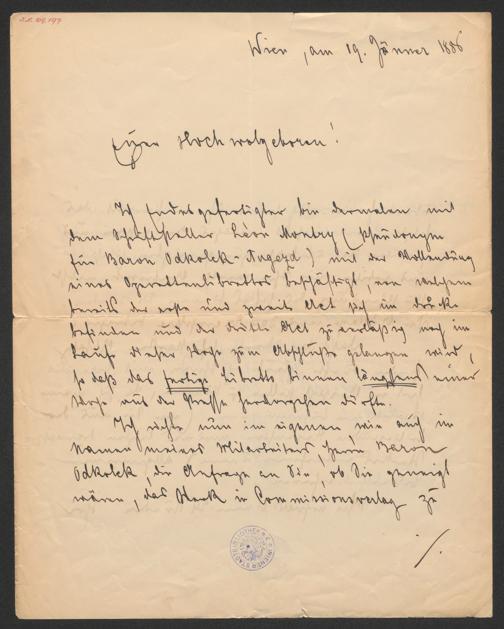 Wien, am 19. Jänner 1886
Euer Hochwolgeboren!
Ich Endesgefertigter bin dermalen mit
dem Schriftsteller Léon Montry (Pseudonym
für Baron Odkolek-Augezd) mit der Vollendung
eines Operettenlibrettos beschäftigt, von welchem
bereits der erste und zweite Act sich im Drucke
befinden und der dritte Act zuverläßig noch im
Laufe dieser Woche zum Abschluße gelangen wird,
so daß das fertige Libretto binnen längstens einer
Woche aus der Presse hervorgehen dürfte.
Ich richte nun im eigenen wie auch im
Namen meines Mitarbeiters, Herrn Baron
Odkolek, die Anfrage an Sie, ob Sie geneigt
wären, das Werk in Commissionsverlag zu
./.